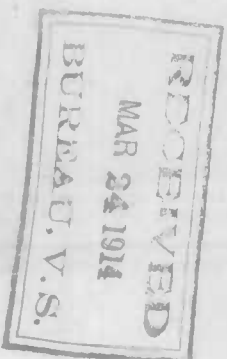 RECEIVED
MAR 24 1914
BUREAU, V.S.